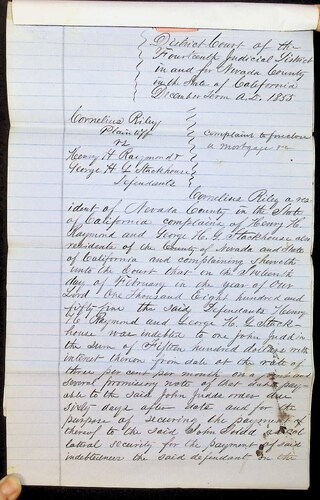 District Court of the
Fourteenth Judicial District
in and for Nevada County
in the State of California
December Term A.D. 1855
Cornelius Riley
Plaintiff
vs
Henry H. Raymond &
George H. G. Stackhouse
Defendants
complaint to foreclose
a mortgage &c
Cornelius Riley a res-
ident of Nevada County in the State
of California complains of Henry H.
Raymond and George H. G. Stackhouse also
residents of the County of Nevada and State
of California and complaining sheweth
unto the Court that on the Sixteenth
day of February in the year of Our
Lord One Thousand Eight hundred and
fifty five the said Defendants Henry
H. Raymond and George H. G. Stack-
house was indebted to one John Judd in
the sum of Fifteen hundred dollars with
interest thereon from date at the rate of
three per cent per month on
several promissory note of that date pay-
able to the said John Judd order due
sixty days after date and for the
purpose of securing the payment
thereof to the said John Judd
lateral security for the payment of said
indebtedness the said defendant on the